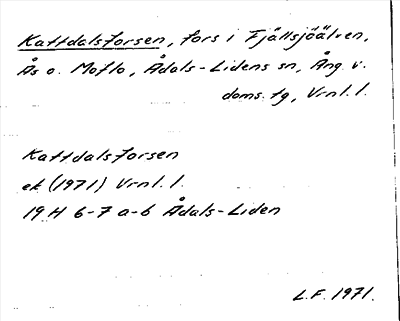 Kattdalsforsen, fors i Fjällsjöälven,
Ås o. Moflo, Ådals-Lidens sn, Ång. v.
doms. tg, Vrnl. l.
Kattdalsforsen
ek (1971) Vrnl. l.
19 H 6-7 a-b Ådals-Liden
L.F. 1971.